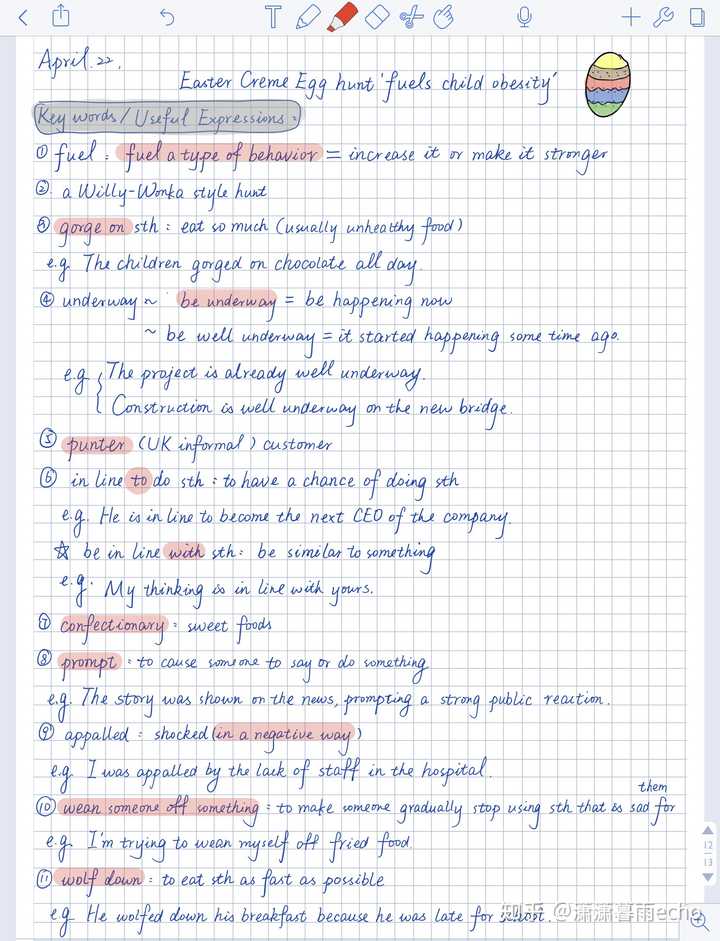 April.22.
Easter Creme Egg hunt 'fuels child obesity'
Key words / Useful Expressions:
① fuel : fuel a type of behavior = increase it or make it stronger
②. a Willy-Wonka style hunt
③ gorge on sth : eat so much (usually unhealthy food)
e.g. The children gorged on chocolate all day.
④ underway ~ be underway = be happening now
~ be well underway = it started happening some time ago.
e.g. { The project is already well underway.
Construction is well underway on the new bridge.
⑤ punter (UK informal) customer
⑥ in line to do sth : to have a chance of doing sth
e.g. He is in line to become the next CEO of the company.
☆ be in line with sth : be similar to something
e.g. My thinking is in line with yours.
⑦ confectionary : sweet foods
⑧ prompt : to cause someone to say or do something
e.g. The story was shown on the news, prompting a strong public reaction.
⑨ appalled : shocked (in a negative way)
e.g. I was appalled by the lack of staff in the hospital.
them
⑩ wean someone off something : to make someone gradually stop using sth that is sad for
e.g. I'm trying to wean myself off fried food.
⑪ wolf down : to eat sth as fast as possible
e.g. He wolfed down his breakfast because he was late for school.
12
13
知乎 @潇潇暮雨echo